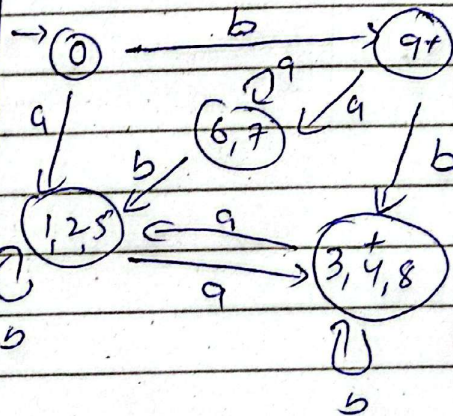 b
0
9+
a
a
a
6,7
b
b
1,2,5
a
+
3,4,8
a
b
b